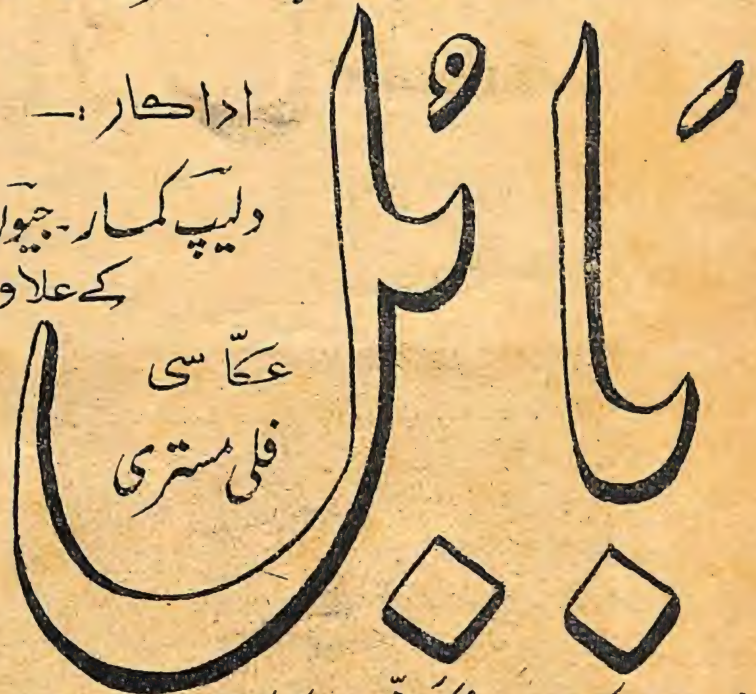 بَابُل
اداکار :-
دلیپ کمار - جیون
کے علاوہ
عکّاسی
فلی مستری